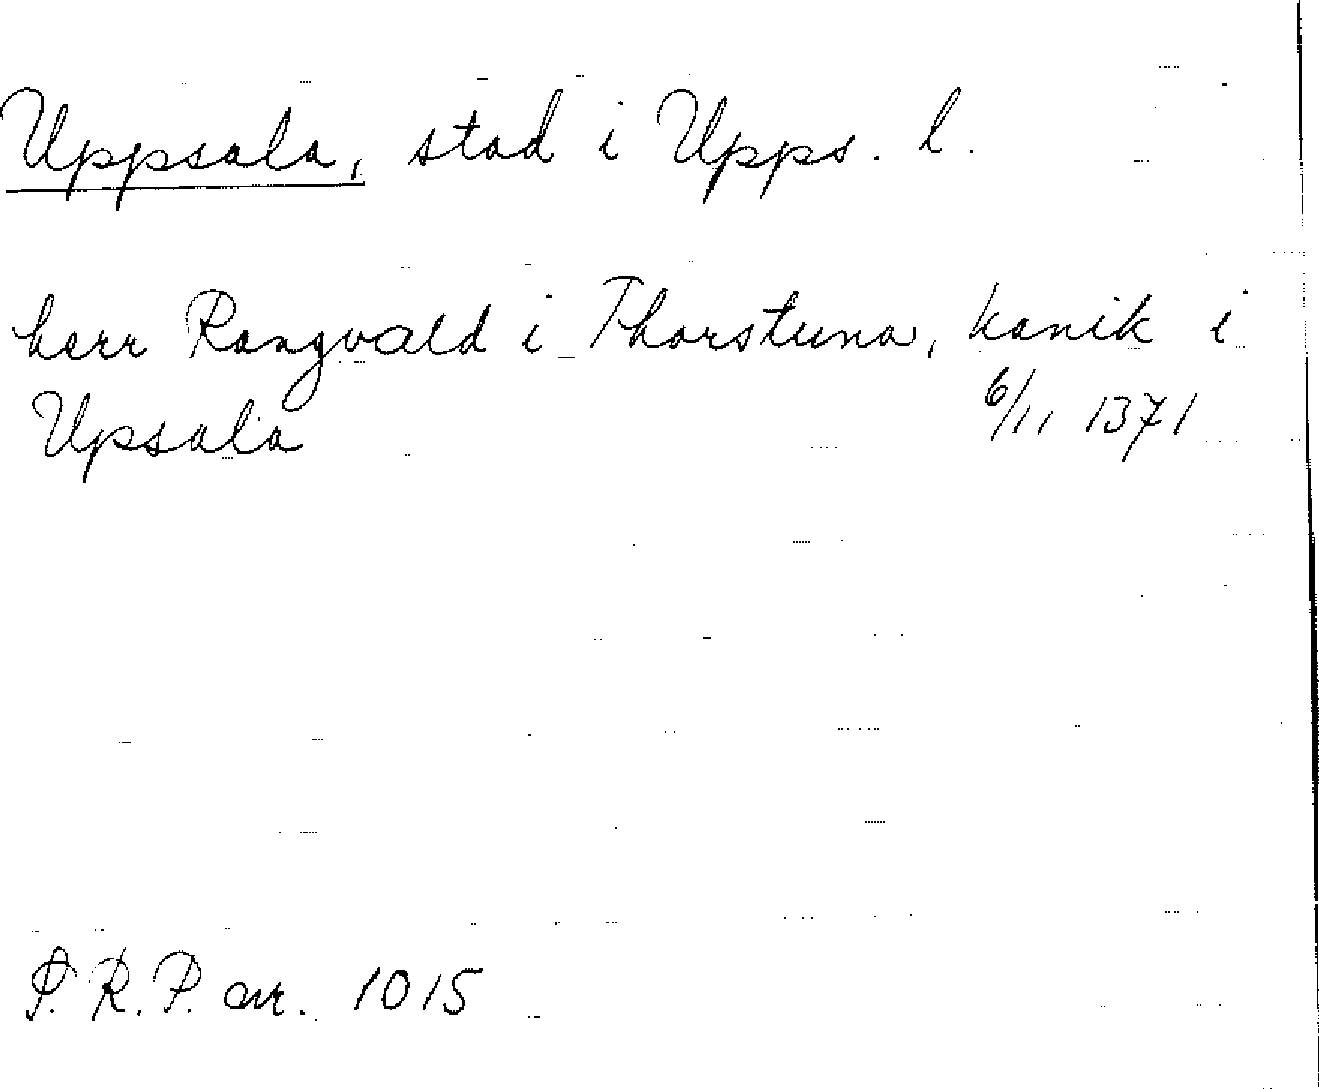 Uppsala, stad i Upps. l.
herr Rangvald i Thorstuna, kanik i
Upsala 6/11 1371
S.R.P. nr. 1015